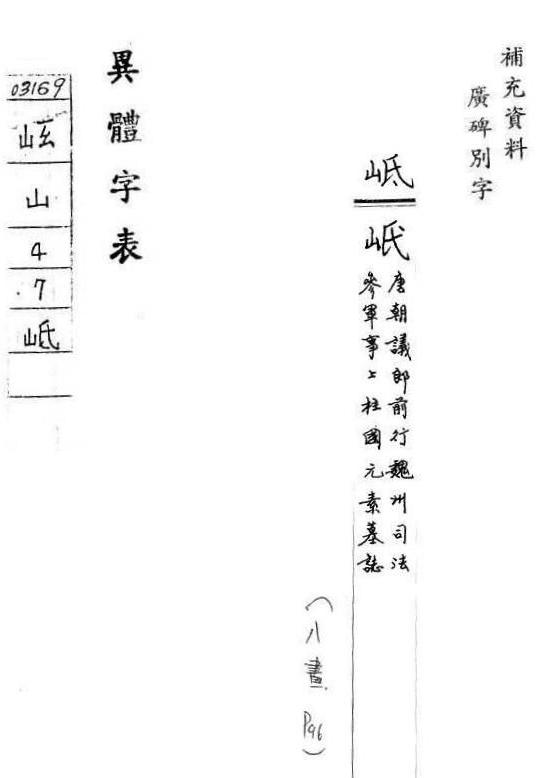 補充資料
廣碑別字
岻
唐朝議郎前行魏州司法
參軍事上柱國元素墓誌
(八畫 P96)
異體字表
03169
山
4
7
岻